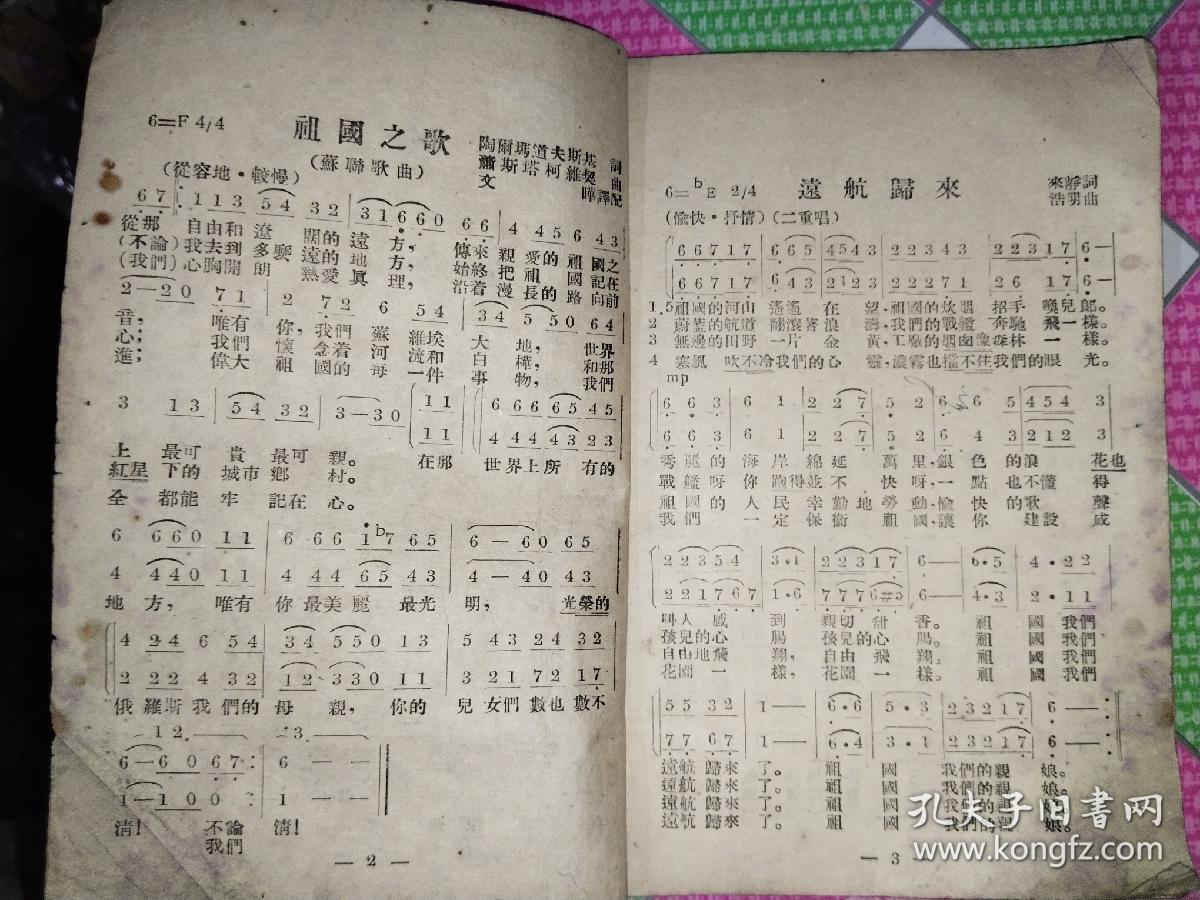 6=F 4/4
祖國之歌
陶爾瑪道夫斯基 詞
蕭斯塔柯維契 曲
文 曄 譯配
(從容地·較慢)
(蘇聯歌曲)
67 113 54 32 31660 66 4 456 43
從那 自由和 遼 闊的 遠 方, 傳來 親 愛的祖 國之
(不論)我去到 多麼 遠的地 方, 始終 把 祖國 記在
(我們)心胸開 朗 熱愛眞 理, 沿着 漫 長的路 向前
2—20 71 2 72 6 54 34 5 50 64
音; 唯有 你,我們 蘇 維埃 大 地, 世界
心; 我們 懷 念着 河 流和 白 樺, 和那
進; 偉大 祖 國的 母 一件 事 物, 我們
3 13 54 32 3—30 11 666 65 45
11 444 43 23
上 最可 貴 最可 親。 在那 世界上所 有的
紅星 下的 城市 鄉 村。
全 都能 牢 記在 心。
6 660 11 6 66 1b7 65 6—60 65
4 440 11 4 44 65 43 4—40 43
地 方, 唯有 你 最美 麗 最光 明, 光榮的
4 24 6 54 34 550 54 5 43 24 32
2 22 4 32 12 330 11 3 21 72 17
俄 羅斯 我 們的 母 親, 你的 兒 女們 數也 數不
12. 3.
6—6 0 67: 6 —
1—1 0 0 : 1 —
淸! 不論 淸!
我們
— 2 —
6=bE 2/4
遠航歸來
來靜詞
浩明曲
(愉快·抒情)(二重唱)
66717 665 4543 22343 22317 6—
66717 643 2123 22343 26 17 6—
1.5祖國的河山 遙遙 在 望,祖國的炊烟 招手 喚兒 郎。
2 蔚藍的航道 翻滾著 浪 濤,我們的戰艦 奔馳 飛一 樣。
3 無邊的田野 一片 金 黃,工廠的烟囪像森林 一 樣。
4 寒風 吹不冷我們的心 靈,濃霧也擋不住我們的眼 光。
mp
6 6 3 6 1 2 27 5 2 6 6 5 454 3
6 6 3 6 1 2 27 5 2 6 6 5 212 3
秀麗的 海 岸 綿延 萬 里,銀 色 的 浪 花也
戰艦呀 你 跑得並不 快 呀,一 點 也不懂 得
祖國的 人 民 幸勤地 勞 動,愉 快 的 歌 聲
我們 一 定 保衞 祖 國,讓 你 建設 成
22354 3·1 22317 6— 6·5 4·22
221767 1·6 7776#5 6— 4·3 2·11
叫人 感 到 親切 甜 香。 祖 國 我們
孩兒的心 腸 孩兒的心 腸。 祖 國 我們
自由地飛 翔, 自由 飛 翔。 祖 國 我們
花園一 樣, 花園 一 樣。 祖 國 我們
55 32 1—— 6·6 5·3 23217 6—:
77 67 1—— 6·4 3·1 23217 6—:
遠航 歸來 了。 祖 國 我們的親 娘。
遠航 歸來 了。 祖 國 我們的親 娘。
遠航 歸來 了。 祖 國 我們的親 娘。
遠航 歸來 了。 祖 國 我們的親 娘。
— 3
孔夫子旧书网
www.kongfz.com